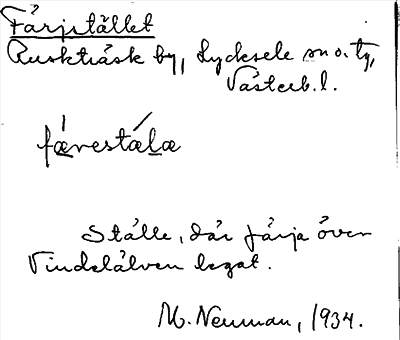 Färjstället
Rusksträsk by, Lycksele sn o. tg,
Västerb. l.
fǽrestǽlæ
Ställe, där färja över
Vindelälven legat.
M. Neuman, 1934.